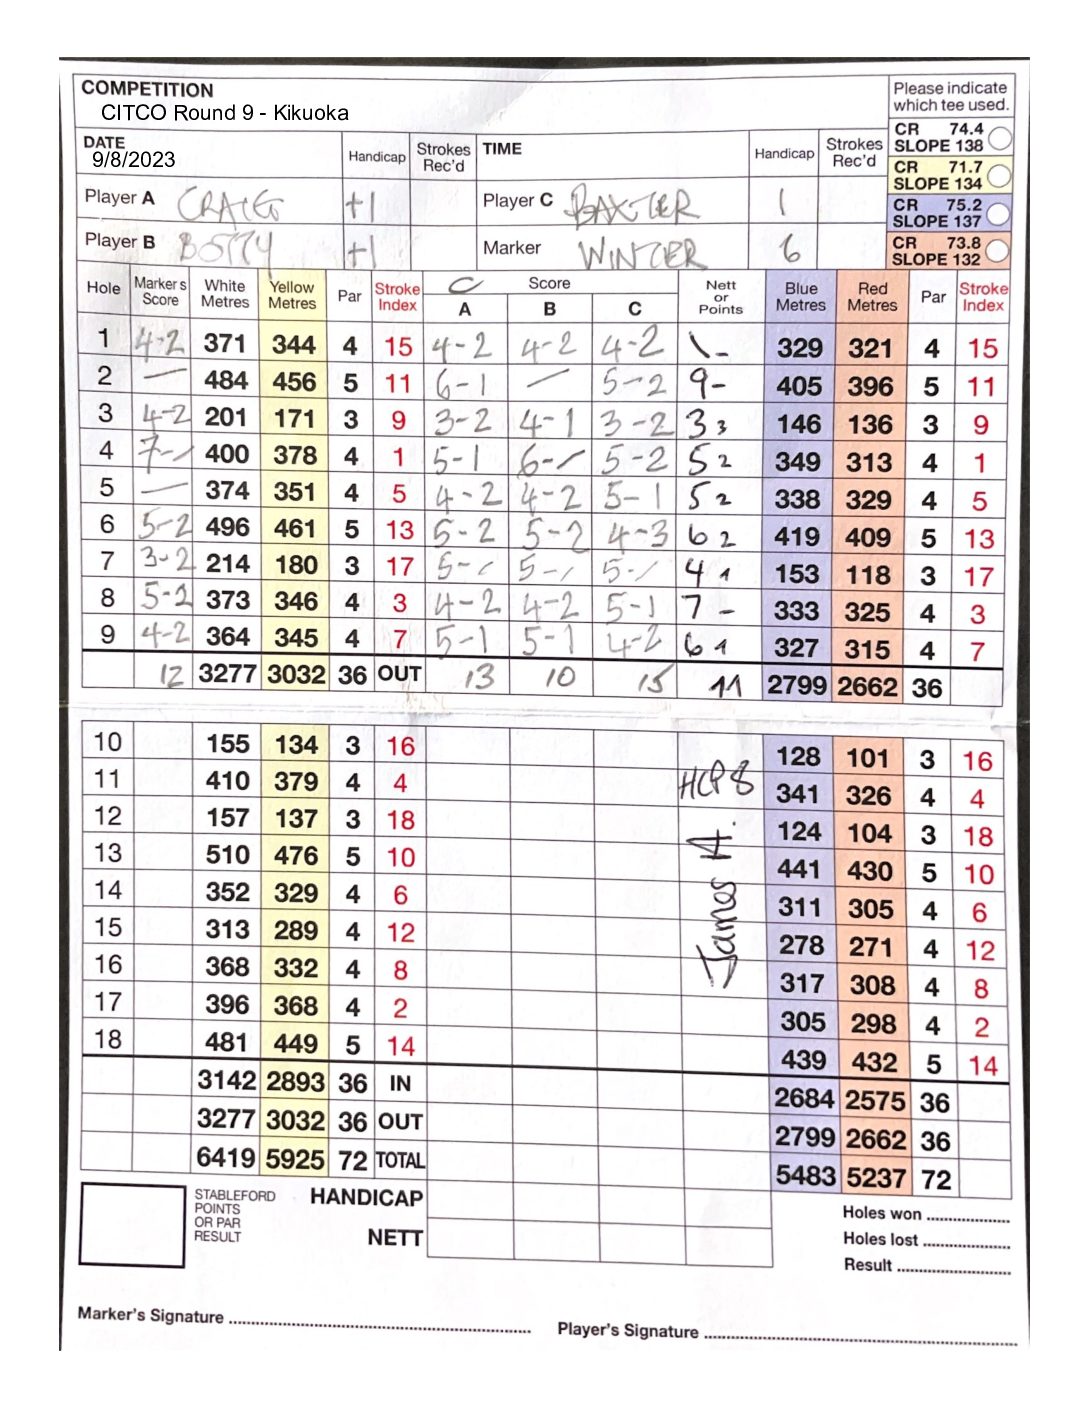 COMPETITION
CITCO Round 9 - Kikuoka
Please indicate which tee used.
CR 74.4 SLOPE 138
CR 71.7 SLOPE 134
CR 75.2 SLOPE 137
CR 73.8 SLOPE 132
DATE 9/8/2023 Handicap Strokes Rec'd TIME Handicap Strokes Rec'd
Player A CRAIG +1 Player C BAXTER 1
Player B BOTTY +1 Marker WINTER 6
Hole Marker's Score White Metres Yellow Metres Par Stroke Index C Score A B C Nett or Points Blue Metres Red Metres Par Stroke Index
1 4-2 371 344 4 15 4-2 4-2 4-2 \- 329 321 4 15
2 — 484 456 5 11 6-1 — 5-2 9- 405 396 5 11
3 4-2 201 171 3 9 3-2 4-1 3-2 3 3 146 136 3 9
4 7-/ 400 378 4 1 5-1 6-/ 5-2 5 2 349 313 4 1
5 — 374 351 4 5 4-2 4-2 5-1 5 2 338 329 4 5
6 5-2 496 461 5 13 5-2 5-2 4-3 6 2 419 409 5 13
7 3-2 214 180 3 17 5-/ 5-/ 5-/ 4 1 153 118 3 17
8 5-2 373 346 4 3 4-2 4-2 5-1 7 - 333 325 4 3
9 4-2 364 345 4 7 5-1 5-1 4-2 6 1 327 315 4 7
12 3277 3032 36 OUT 13 10 15 11 2799 2662 36
10 155 134 3 16 128 101 3 16
11 410 379 4 4 HCP 8 341 326 4 4
12 157 137 3 18 124 104 3 18
13 510 476 5 10 441 430 5 10
14 352 329 4 6 James A. 311 305 4 6
15 313 289 4 12 278 271 4 12
16 368 332 4 8 317 308 4 8
17 396 368 4 2 305 298 4 2
18 481 449 5 14 439 432 5 14
3142 2893 36 IN 2684 2575 36
3277 3032 36 OUT 2799 2662 36
6419 5925 72 TOTAL 5483 5237 72
STABLEFORD POINTS OR PAR RESULT
HANDICAP
NETT
Holes won ....................
Holes lost ....................
Result ..........................
Marker's Signature ............................................................
Player's Signature ............................................................